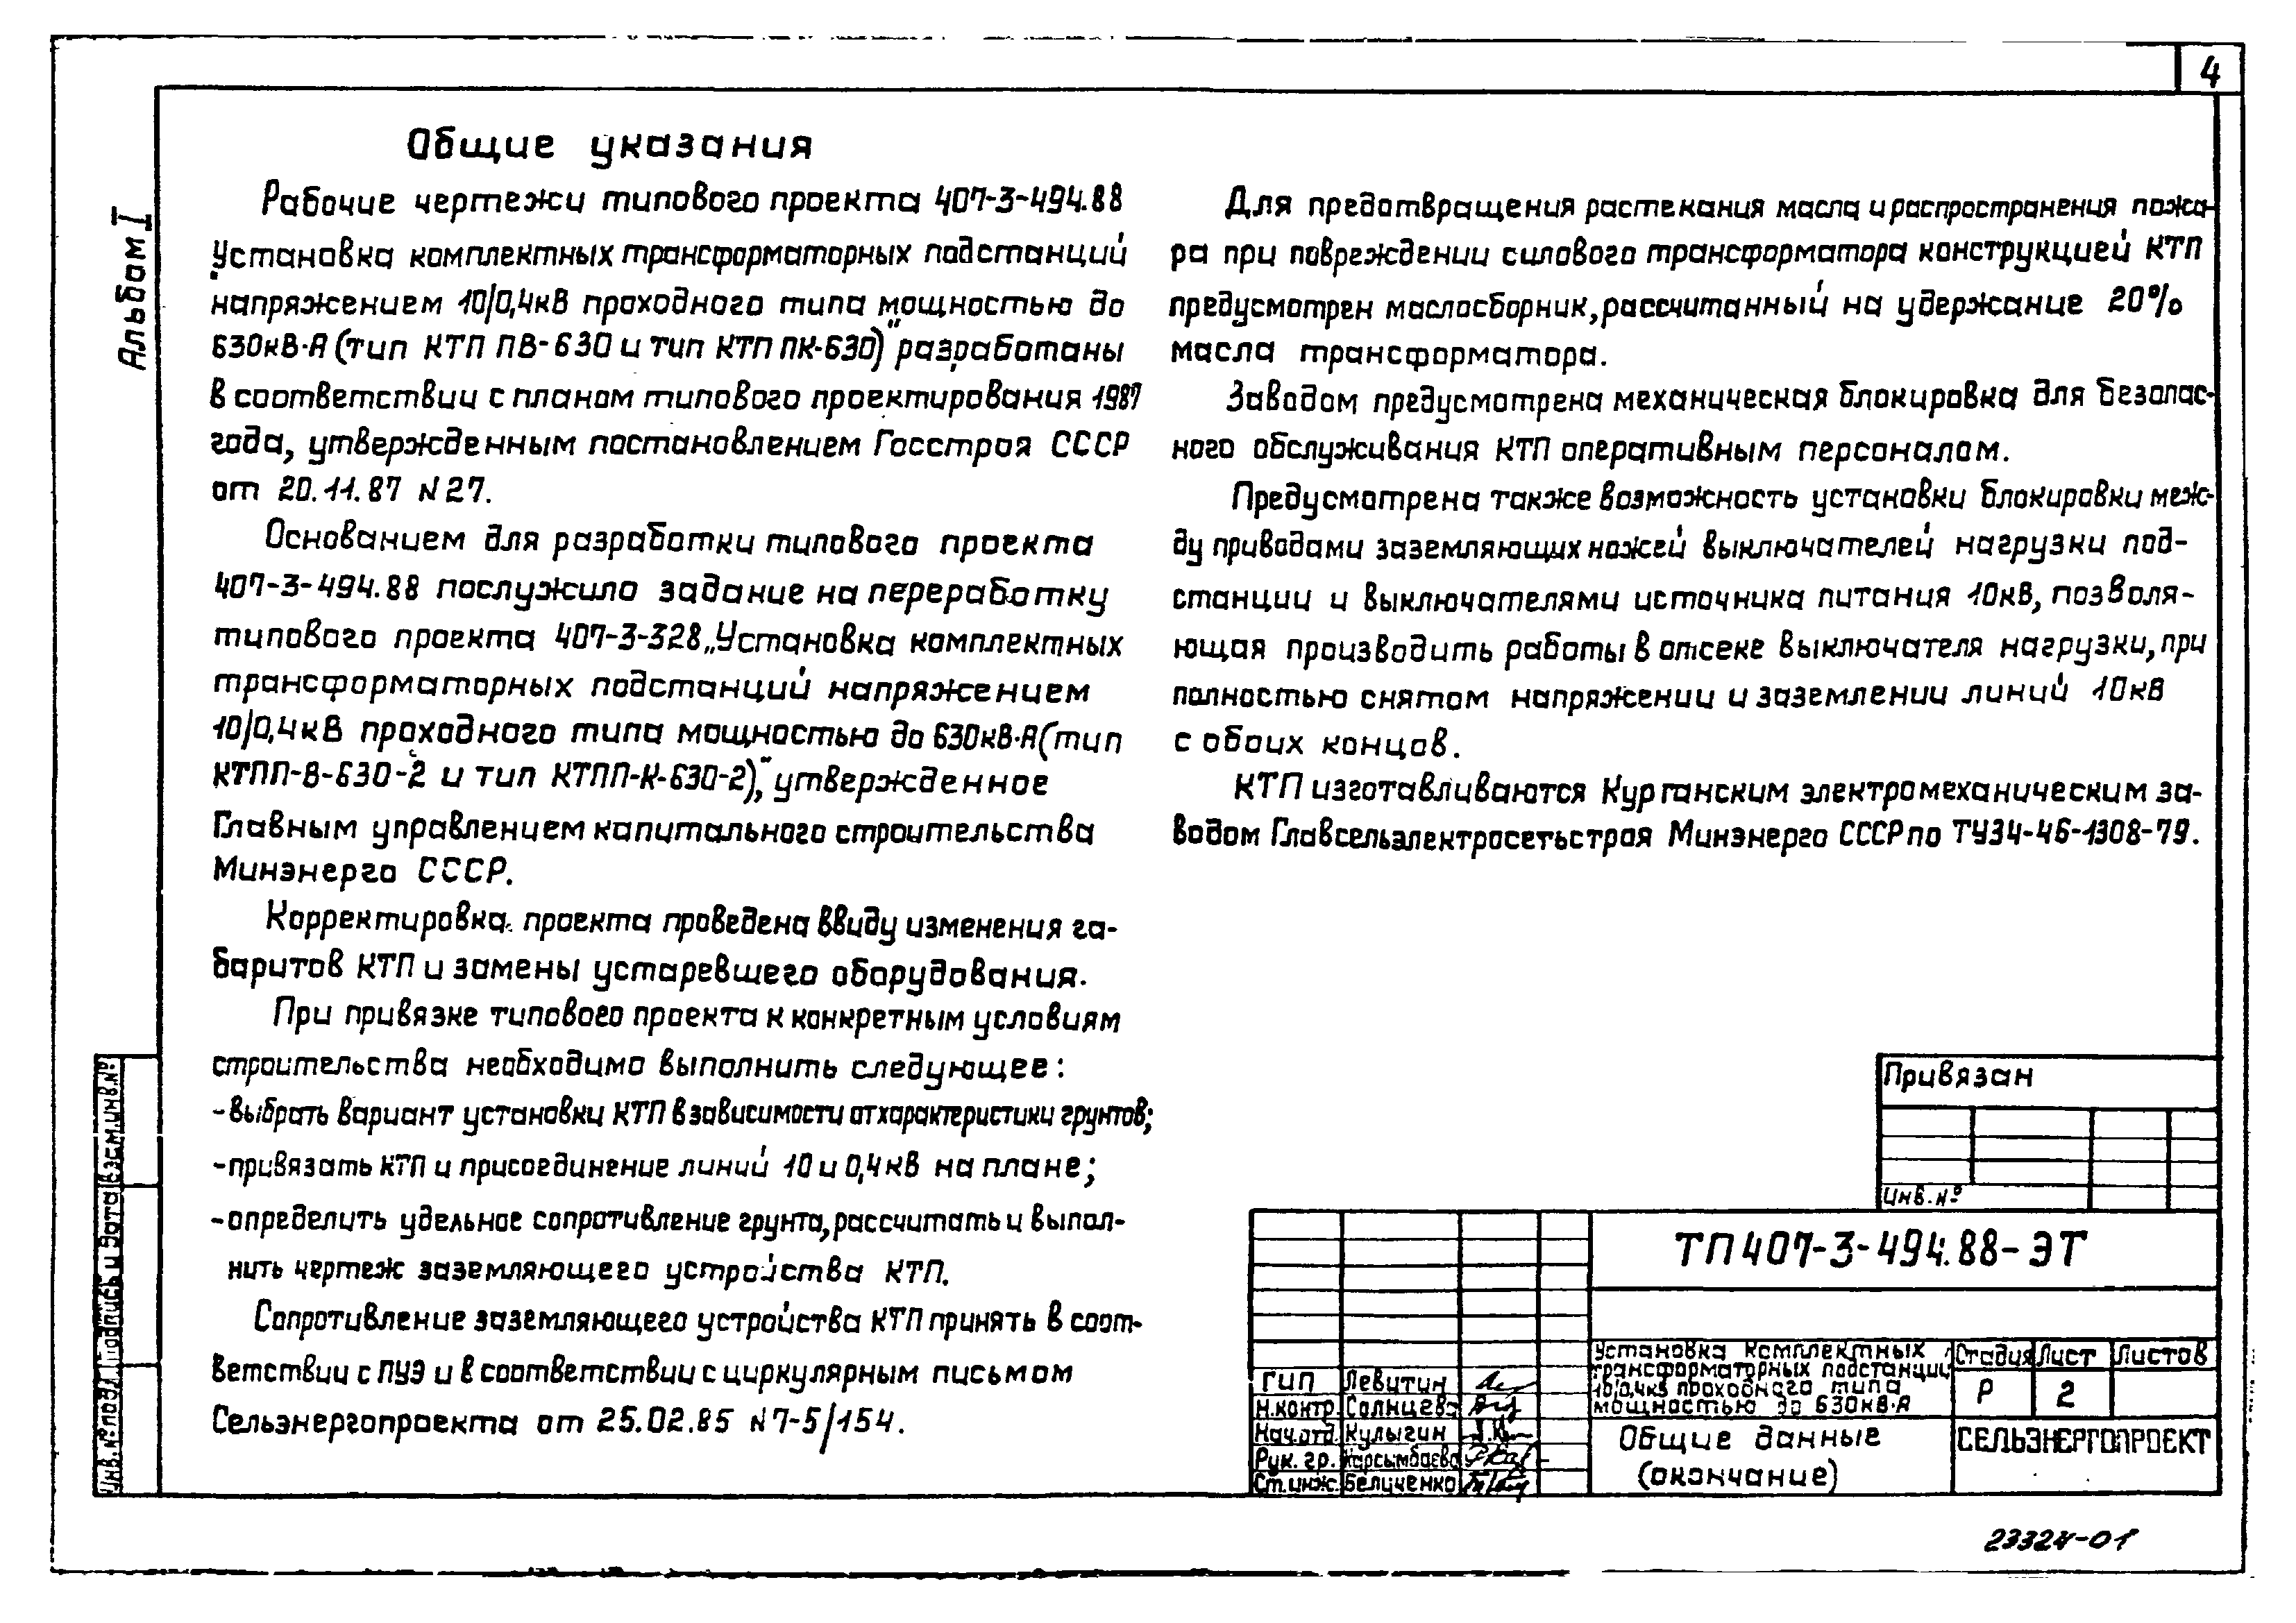 4
Альбом I
Общие указания
Рабочие чертежи типового проекта 407-3-494.88
„Установка комплектных трансформаторных подстанций
напряжением 10/0,4кВ проходного типа мощностью до
630кВ·А (тип КТП ПВ-630 и тип КТП ПК-630)" разработаны
в соответствии с планом типового проектирования 1987
года, утвержденным постановлением Госстроя СССР
от 20.11.87 №27.
Основанием для разработки типового проекта
407-3-494.88 послужило задание на переработку
типового проекта 407-3-328 „Установка комплектных
трансформаторных подстанций напряжением
10/0,4кВ проходного типа мощностью до 630кВ·А (тип
КТПП-В-630-2 и тип КТПП-К-630-2)", утвержденное
Главным управлением капитального строительства
Минэнерго СССР.
Корректировка проекта проведена ввиду изменения га-
баритов КТП и замены устаревшего оборудования.
При привязке типового проекта к конкретным условиям
строительства необходимо выполнить следующее:
-выбрать вариант установки КТП в зависимости от характеристики грунтов;
-привязать КТП и присоединение линий 10 и 0,4кВ на плане;
-определить удельное сопротивление грунта, рассчитать и выпол-
нить чертеж заземляющего устройства КТП.
Сопротивление заземляющего устройства КТП принять в соот-
ветствии с ПУЭ и в соответствии с циркулярным письмом
Сельэнергопроекта от 25.02.85 №7-5/154.
Для предотвращения растекания масла и распространения пожа-
ра при повреждении силового трансформатора конструкцией КТП
предусмотрен маслосборник, рассчитанный на удержание 20%
масла трансформатора.
Заводом предусмотрена механическая блокировка для безопас-
ного обслуживания КТП оперативным персоналом.
Предусмотрена также возможность установки блокировки меж-
ду приводами заземляющих ножей выключателей нагрузки под-
станции и выключателями источника питания 10кВ, позволя-
ющая производить работы в отсеке выключателя нагрузки, при
полностью снятом напряжении и заземлении линий 10кВ
с обоих концов.
КТП изготавливаются Курганским электромеханическим за-
водом Главсельэлектросетьстроя Минэнерго СССР по ТУ34-46-1308-79.
Привязан
Инв.№
ТП407-3-494.88-ЭТ
Установка комплектных
трансформаторных подстанций
10/0,4кВ проходного типа
мощностью до 630кВ·А
Стадия Лист Листов
Р 2
Общие данные
(окончание)
СЕЛЬЭНЕРГОПРОЕКТ
ГИП Левитин
Н.контр. Солнцева
Нач.отд. Кулыгин
Рук. гр. Карсымбаева
Ст.инж. Беличенко
Инв.№подл. Подпись и дата Взам.инв.№
23324-01